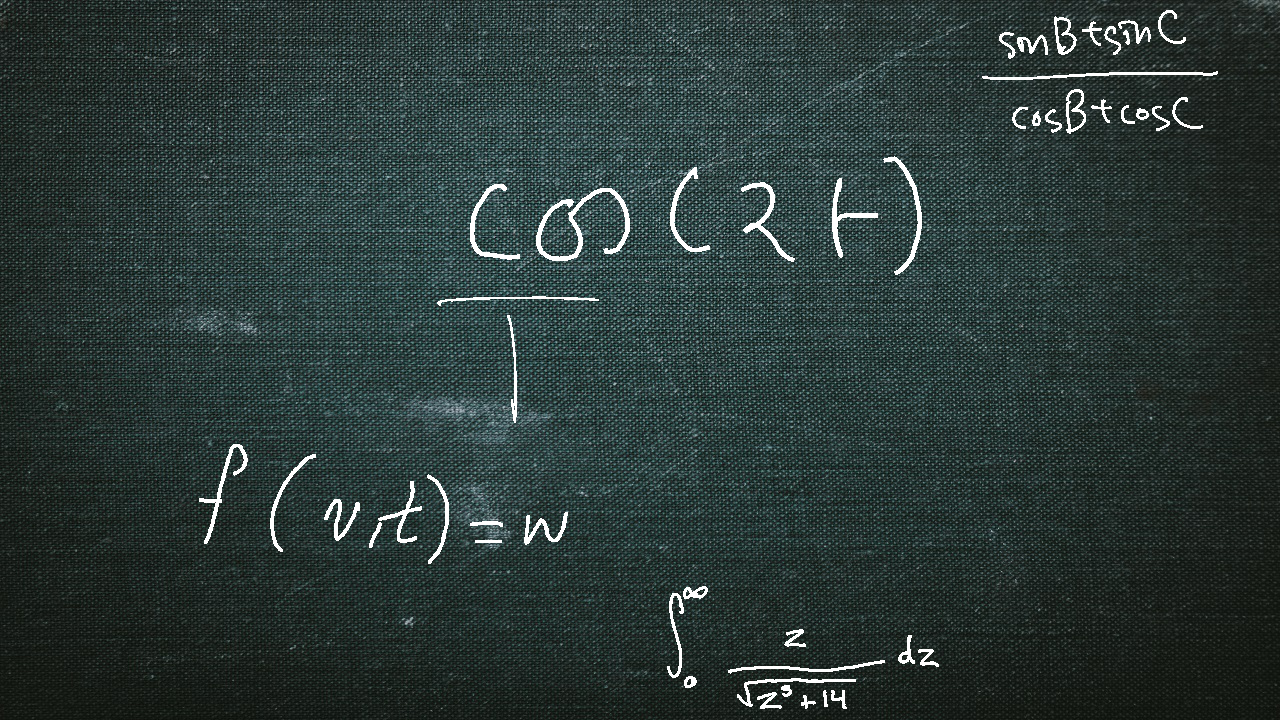 \frac{sinB+sinC}{cosB+cosC}
cos(2t)
T
f(v,t)=w
\int_0^\infty \frac{z}{\sqrt{z^5+14}} dz